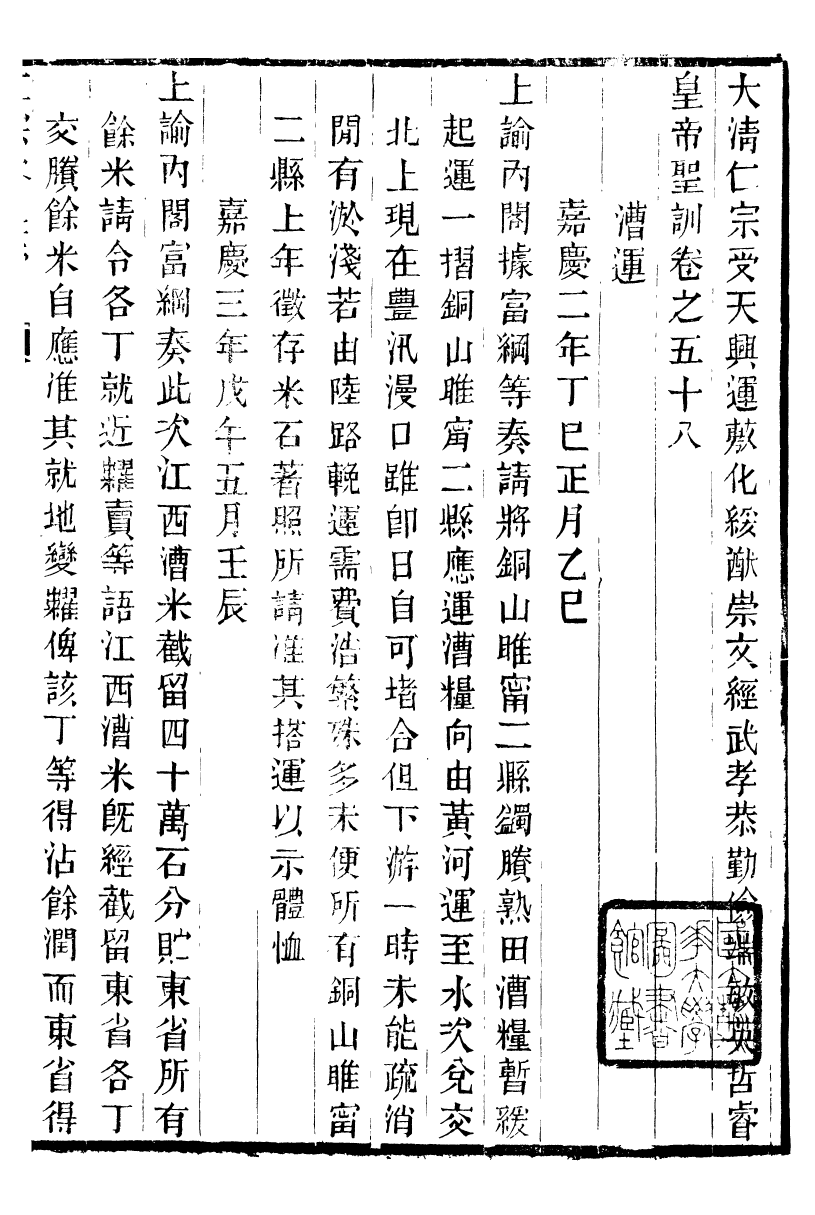 大清仁宗受天興運敷化綏猷崇文經武孝恭勤儉端敏英哲睿
皇帝聖訓卷之五十八
漕運
嘉慶二年丁巳正月乙巳
上諭內閣據富綱等奏請將銅山睢甯二縣蠲賸熟田漕糧暫緩
起運一摺銅山睢甯二縣應運漕糧向由黃河運至水次兌交
北上現在豐汛漫口雖卽日自可堵合但下游一時未能疏消
閒有淤淺若由陸路輓運需費浩繁殊多未便所有銅山睢甯
二縣上年徵存米石著照所請准其搭運以示體恤
嘉慶三年戊午五月壬辰
上諭內閣富綱奏此次江西漕米截留四十萬石分貯東省所有
餘米請令各丁就近糶賣等語江西漕米旣經截留東省各丁
交賸餘米自應准其就地變糶俾該丁等得沾餘潤而東省得
大學
圖書
館藏